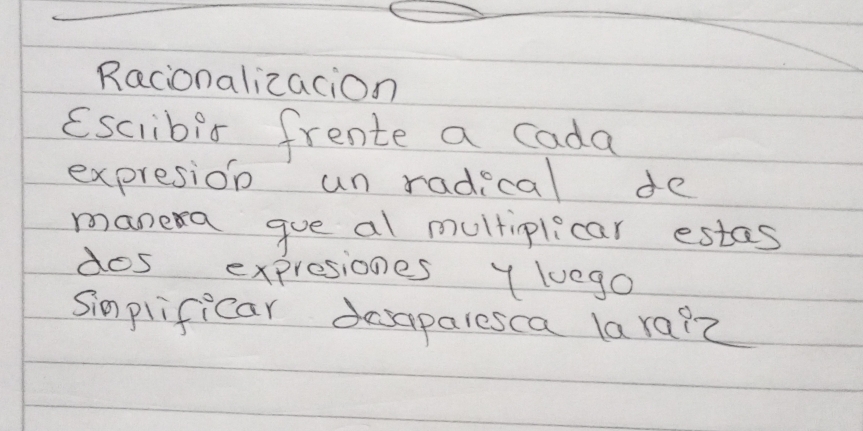 Racionalizacion
Escribir frente a cada
expresión un radical de
manera que al multiplicar estas
dos expresiones y luego
Simplificar desaparesca la raiz